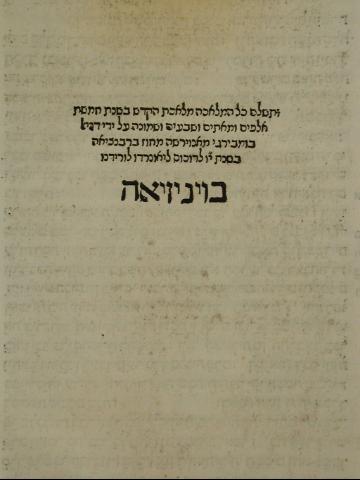 ותשלם כל המלאכה מלאכת הקדש בשנת חמשת
אלפים ומאתים ושבעים ושמונה על ידי דניאל
בומבירגי מאנוירשה מחוז ברבנציאה
בשנת י״ו לדוכוס ליאונרדו לורידנו
בויניזיאה